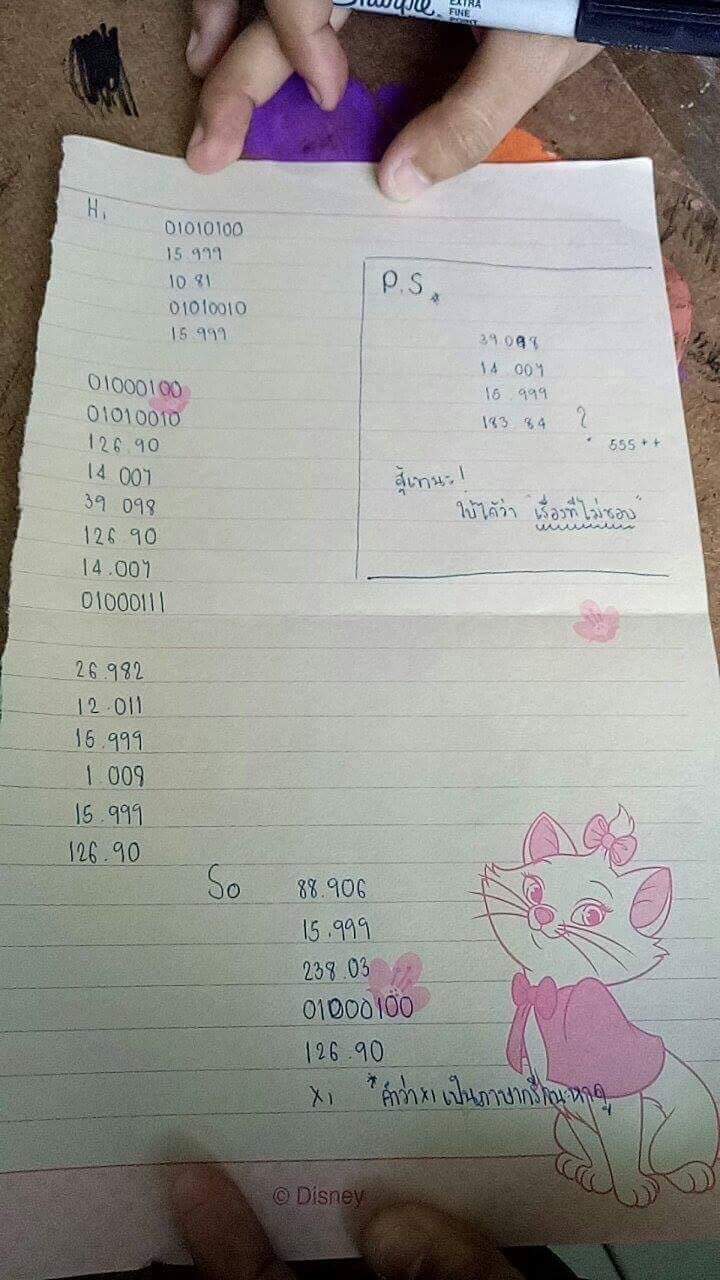 Sharpie
EXTRA
FINE
POINT
Hi
01010100
15.999
10 81
01010010
15.999
01000100
01010010
126.90
14 007
39 098
126 90
14.007
01000111
26.982
12.011
15.999
1.008
15.999
126.90
P.S *
39.098
14 007
15 .999
183 84 ?
555++
สู้เทนะ!
ใบ้ได้ว่า "เรื่องที่ไม่ชอบ"
So
88.906
15.999
238.03
01000100
126.90
Xi *คำว่า xi เป็นภาษากรีกนะ หาดู
© Disney